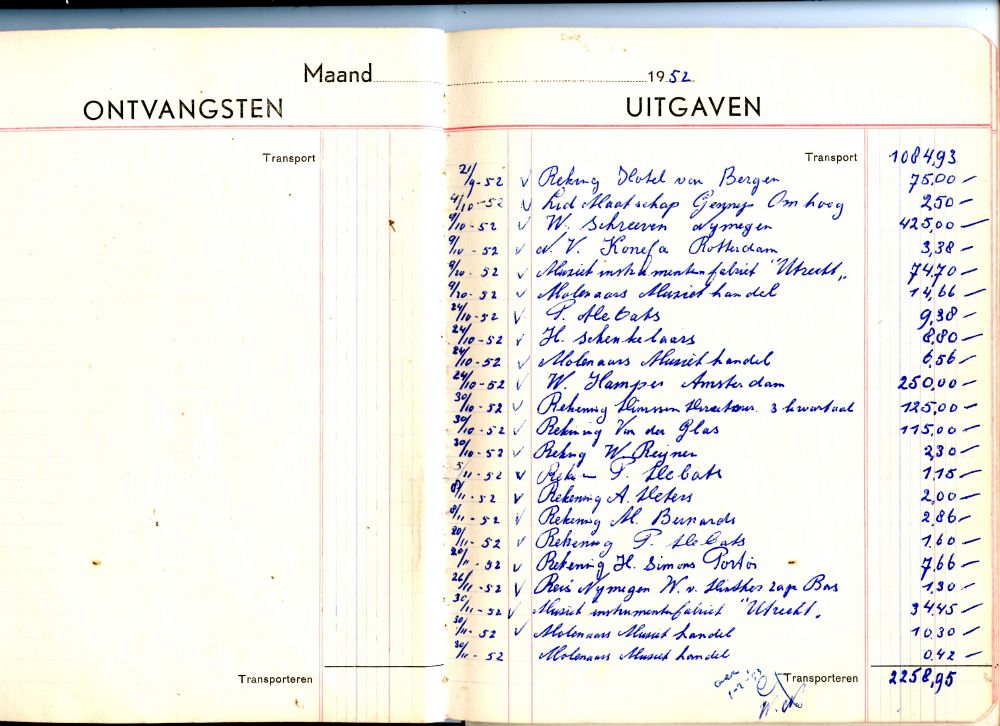 Maand 1952
ONTVANGSTEN UITGAVEN
Transport Transport 1084,93
21/9-52 √ Reking Hotel van Bergen 75,00 —
4/10-52 √ Lid Maatschap Gennep Omhoog 2,50 —
9/10-52 √ W. Schreeven Nymegen 425,00 —
9/10-52 √ N.V. Konefa Rotterdam 3,38 —
9/10-52 √ Muziekinstrumentenfabriek "Utrecht„ 74,70 —
9/10-52 √ Molenaars Muziekhandel 14,66 —
24/10-52 √ P. Hebats 9,38 —
24/10-52 √ H. Schenkelaars 8,80 —
24/10-52 √ Molenaars Muziekhandel 6,56 —
24/10-52 √ W. Hamper Amsterdam 250,00 —
30/10-52 √ Rekening 3 kwartaal 125,00 —
30/10-52 √ Rekening Van der Glas 115,00 —
30/10-52 √ Rekng W. Reynen 2,30 —
5/11-52 √ P. Hebats 1,15 —
8/11-52 √ Rekening A. Heters 2,00 —
8/11-52 √ Rekening M. Bernards 2,86 —
20/11-52 √ Rekening P. Hebats 1,60 —
20/11-52 √ Rekening H. Simons Porto 7,66 —
26/11-52 √ Reis Nymegen W. v. Bas 1,30 —
30/11-52 √ Muziekinstrumentenfabriek "Utrecht„ 34,45 —
30/11-52 √ Molenaars Muziekhandel 10,30 —
30/11-52 Molenaars Muziekhandel 0,42 —
Transporteren Transporteren 2258,95